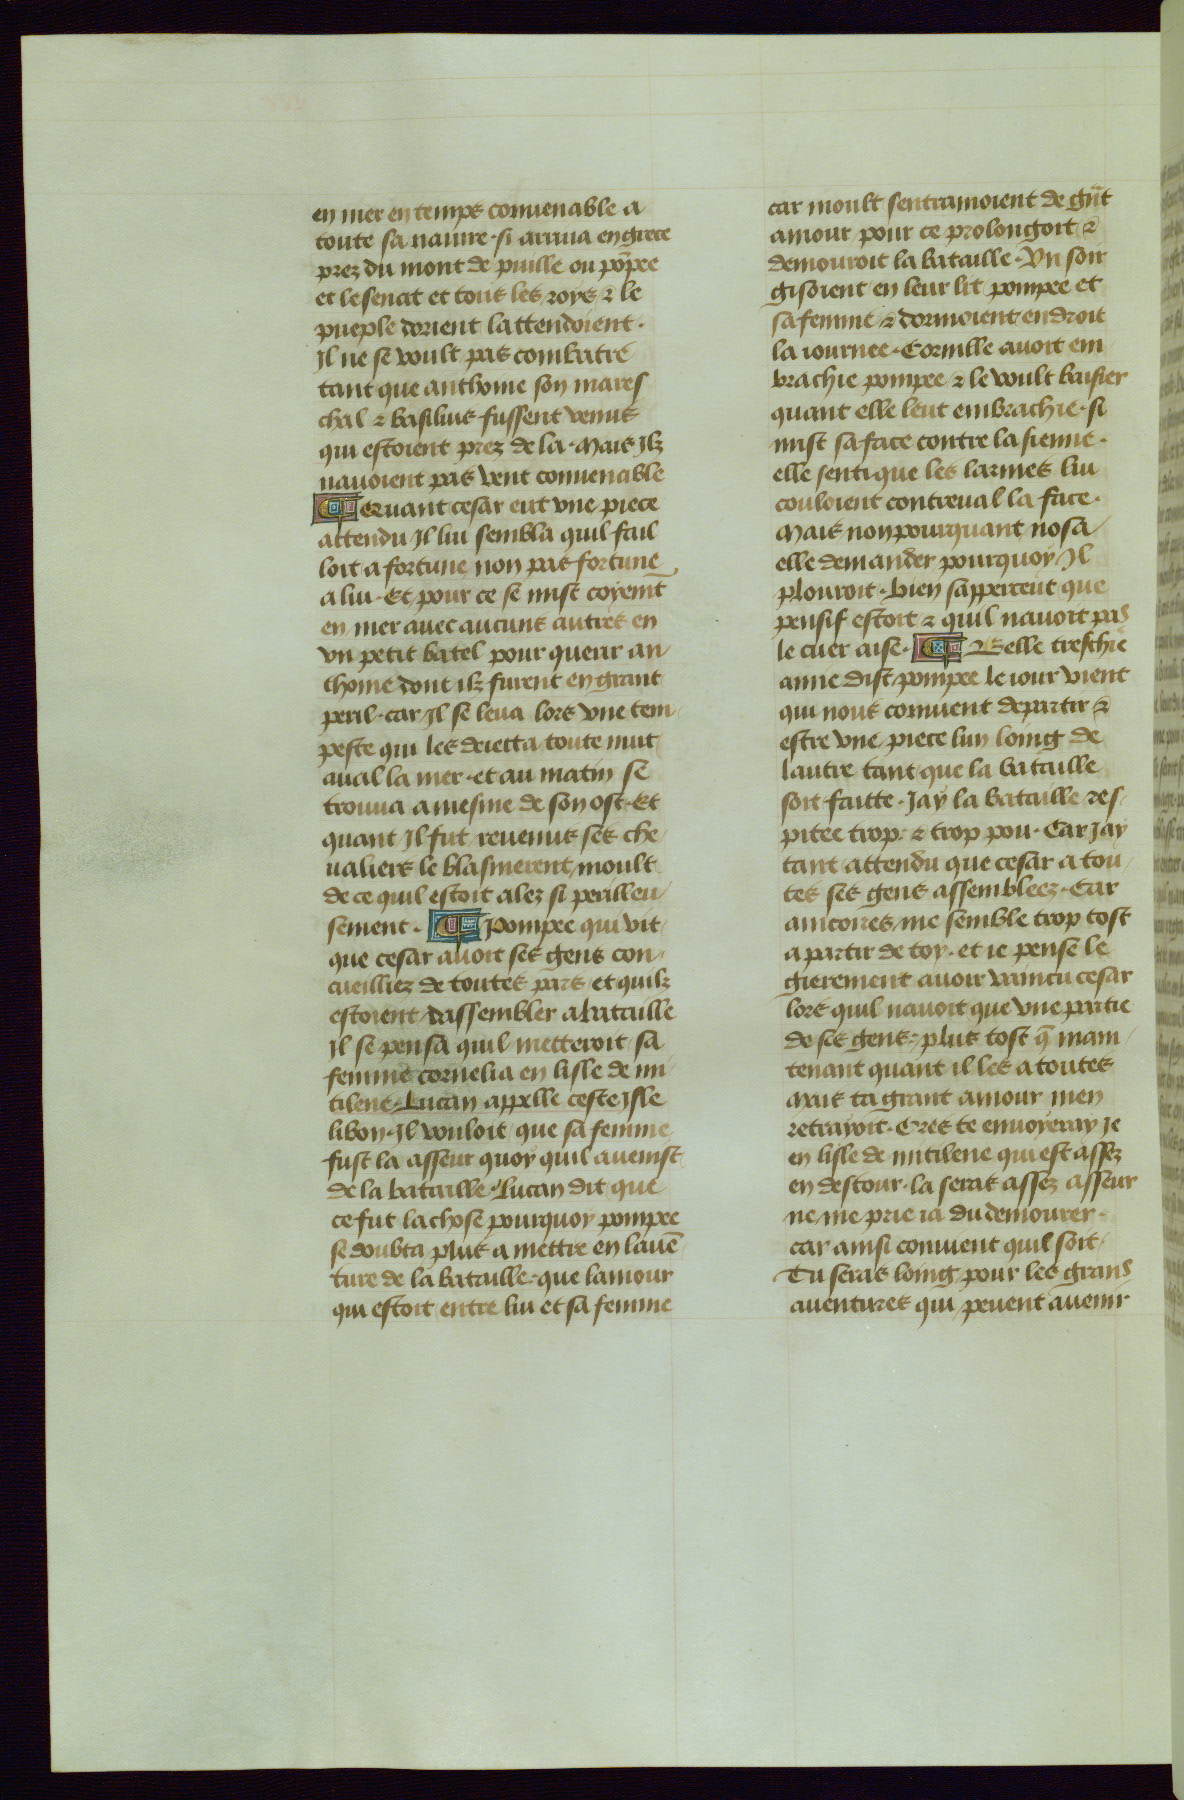 en mer en temps conuenable a
toute sa nauire · si arriua en grece
prez du mont de puille ou põpee
et le senat et tous les roys ⁊ le
pueple dorient lattendoient ·
Il ne se voult pas combatre
tant que anthoine son mares
chal ⁊ basilius fussent venus
qui estoient prez de la · Mais Ilz
nauoient pas vent conuenable
Quant cesar eut vne piece
attendu Il lui sembla quil fail
loit a fortune non pas fortune
a lui · Et pour ce se mist coyemt̃
en mer auec aucuns autres en
vn petit batel pour querir an
thoine dont ilz furent en grant
peril · car Il se leua lors vne tem
peste qui les deietta toute nuit
aual la mer · et au matin se
trouua a mesme de son ost · Et
quant Il fut reuenus ses che
ualiers le blasmerent moult
de ce quil estoit alez si perilleu
sement · Pompee qui vit
que cesar auoit ses gens con
cueilliez de toutes pars et quilz
estoient dassembler a bataille
Il se pensa quil metteroit sa
femme cornelia en lisle de mi
tilene · Lucan appelle ceste Isle
libon · Il vouloit que sa femme
fust la asseur quoy quil auenist
de la bataille · Lucan dit que
ce fut la chose pourquoy pompee
se doubta plus a mettre en lauẽ
ture de la bataille · que lamour
qui estoit entre lui et sa femme
car moult sentramoient de grãt
amour pour ce prolongoit ⁊
demouroit la bataille · Vn soir
gisoient en leur lit pompee et
sa femme ⁊ dormoient endroit
la iournee · Cornille auoit em
brachie pompee ⁊ le voult baisier
quant elle leut embrachie · si
mist sa face contre la sienne ·
elle senti que les larmes lui
couloient contreual la face ·
Mais nonpourquant nosa
elle demander pourquoy Il
plouroit · bien sapperceut que
pensif estoit ⁊ quil nauoit pas
le cuer aise · Belle treschie
amie dist pompee le iour vient
qui nous conuient departir ⁊
estre vne piece lun loing de
lautre tant que la bataille
soit faitte · Jay la bataille res
pitee trop · ⁊ trop pou · Car Jay
tant attendu que cesar a tou
tes ses gens assembleez · Car
aincores me semble trop tost
a partir de toy · et ie pense le
gierement auoir vaincu cesar
lors quil nauoit que vne partie
de ses gens · plus tost q̃ main
tenant quant il les a toutes
Mais ta grant amour men
retrayoit · Ores te enuoyeray Je
en lisle de mitilene qui est assez
en destour · la seras assez asseur
ne me prie ia du demourer ·
car ainsi conuient quil soit ·
Tu seras loing pour les grans
auentures qui peuent auenir